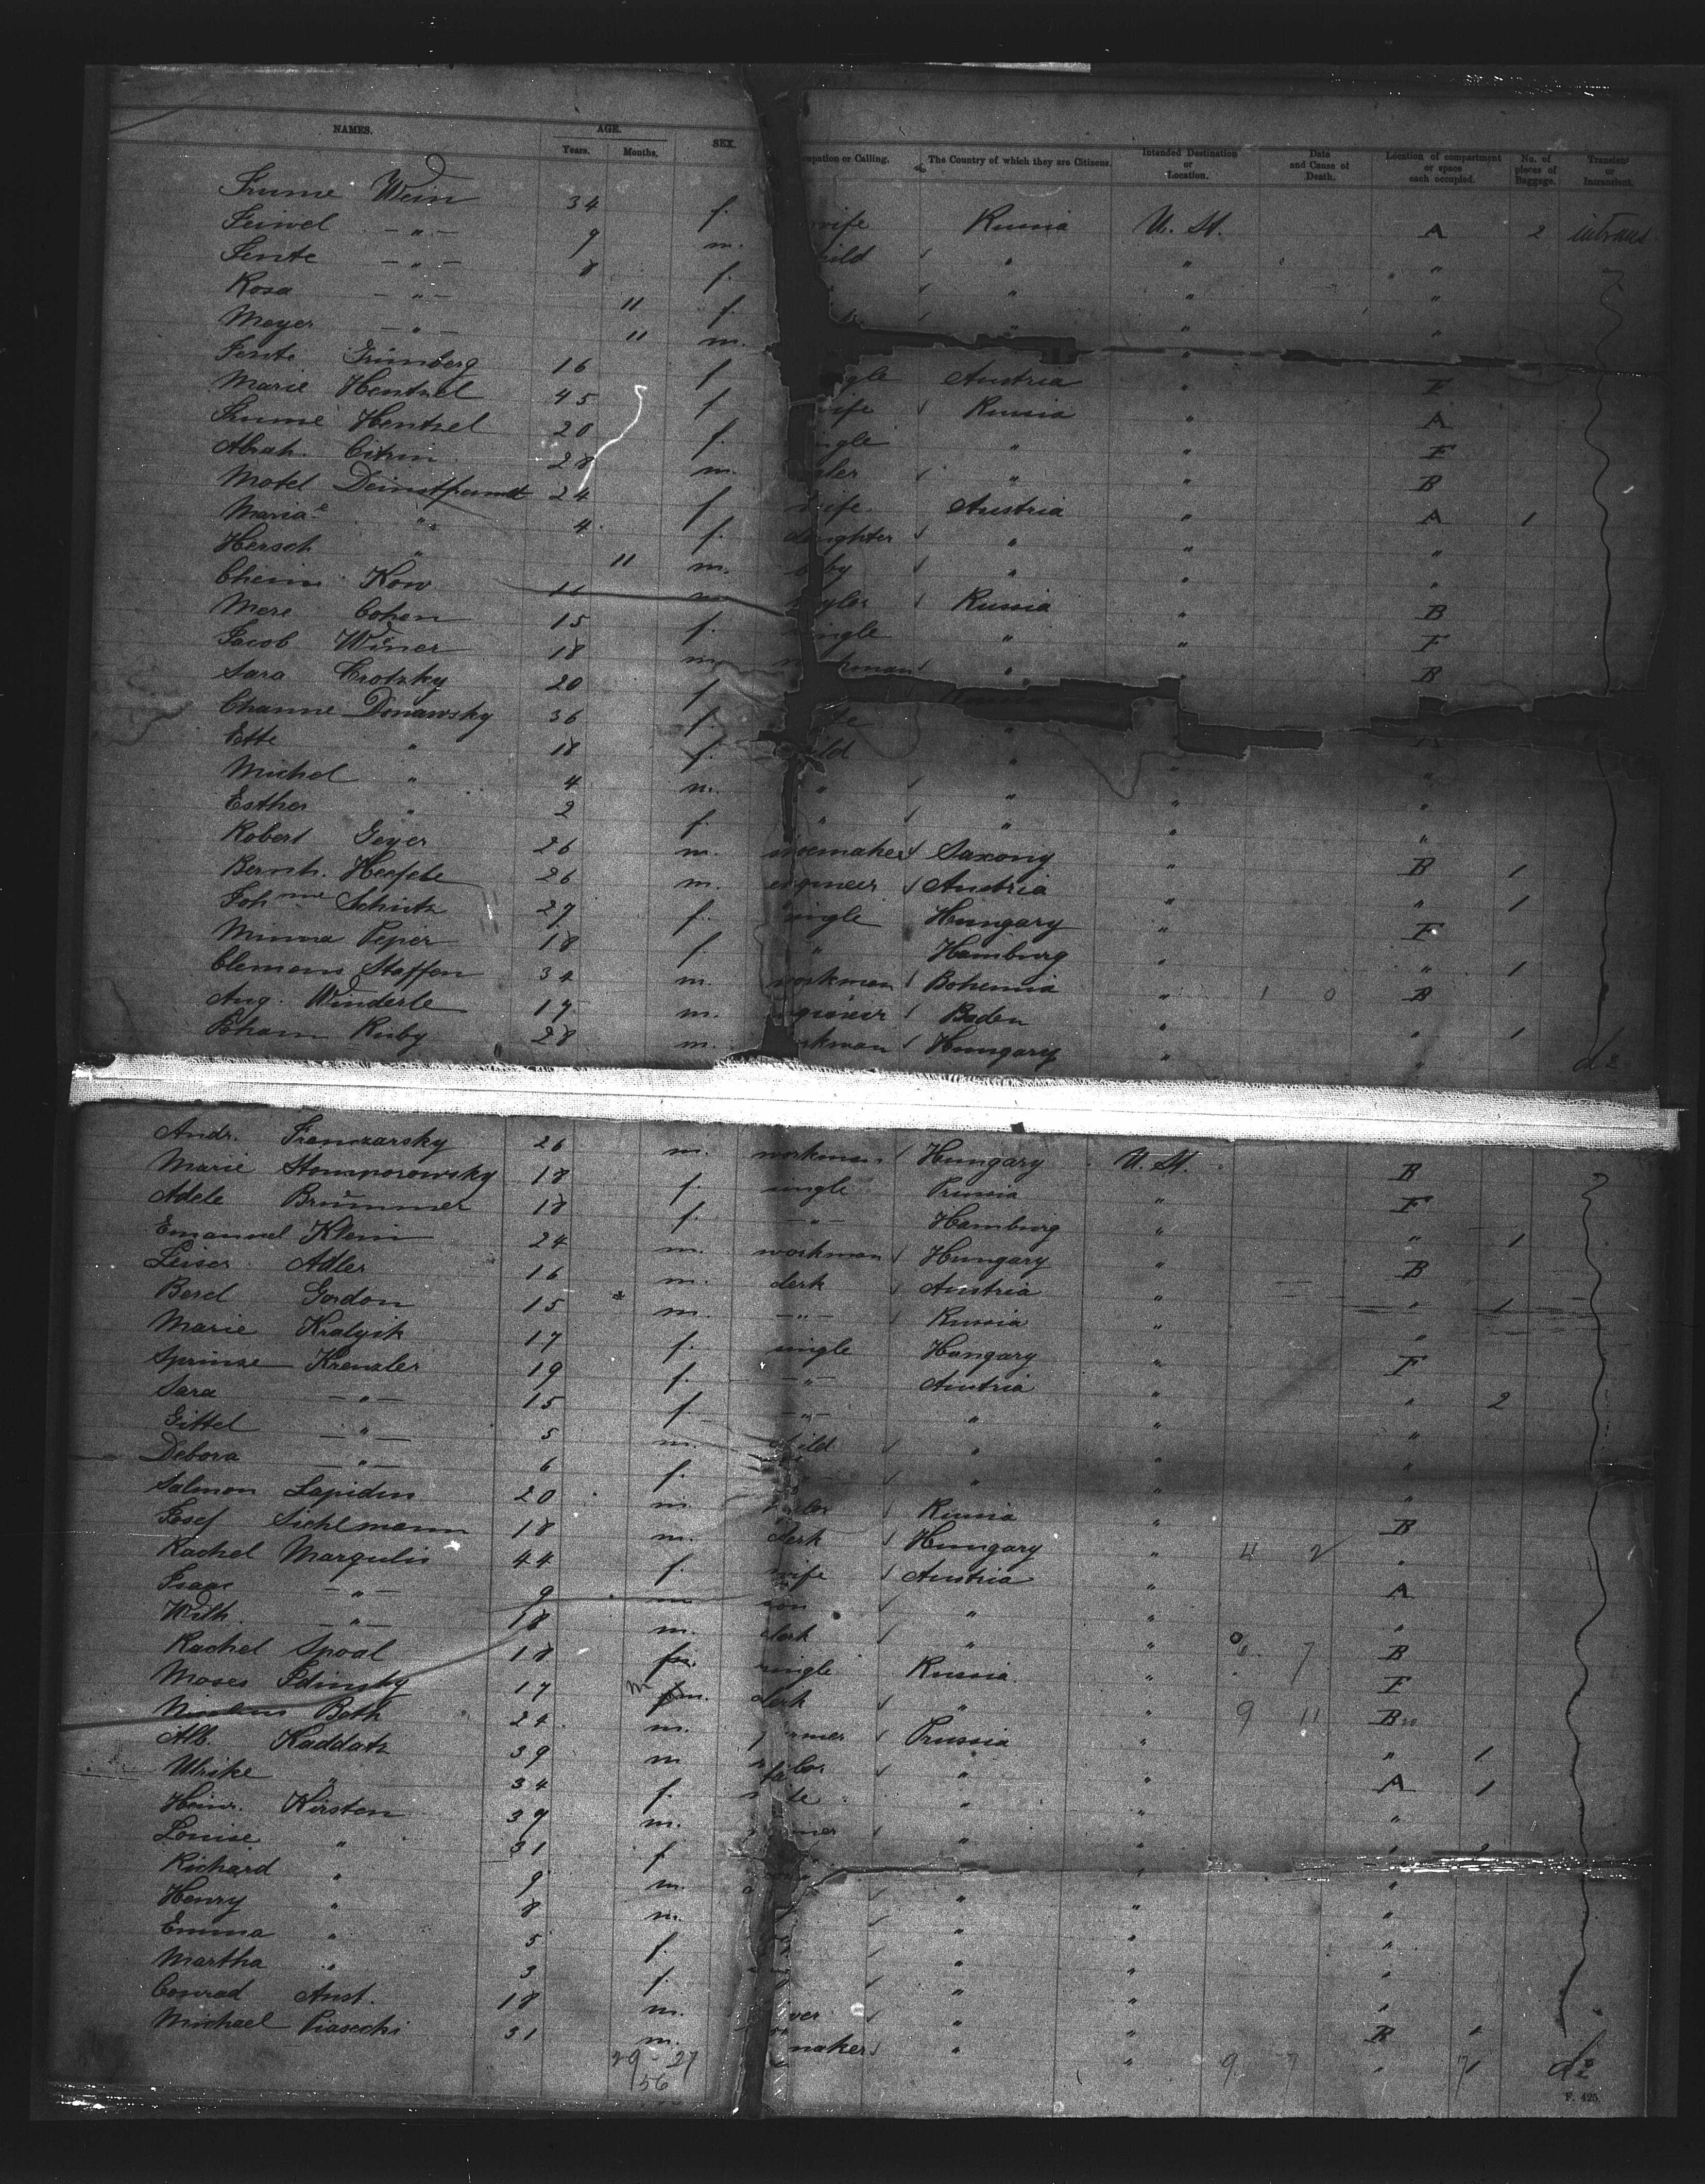 NAMES. AGE. SEX. upation or Calling. The Country of which they are Citizens. Intended Destination or Location. Date and Cause of Death. Location of compartment or space each occupied. No. of pieces of Baggage. Transient or Intransient.
Years. Months.
Frume Wein 34 f. wife Russia U. St. A 2 intrans
Feiwel — " — 9 m. hild " " "
Jente — " — 8 f. " " "
Rosa — " — 11 f. " " "
Meyer — " — 11 m. "
Jente Grünberg 16 f gle Austria " F
Marie Hentzel 45 f wife Russia A
Frume Hentzel 20 f. ingle " " F
Abrah. Citrin 28 m. " " B
Motel 24 f wife Austria " A 1
Maria " 4 f. daughter " " "
Hersch " 11 m. by " " "
Cheim Kow 11 m Russia " B
Mere Cohen 15 f. ingle " " F
Jacob Winer 18 m kman " " B
Sara Crotzky 20 f
Channe Donawsky 36 f. "
Ette " 18 f. ild " " "
Michel " 4 m. " " " "
Esther " 2 f. " " " "
Robert Geyer 26 m. shoemaker Saxony " B 1
Bernh. 26 m. engineer Austria " " 1
Joh nne Schütz 27 f. single Hungary " F
Minna Peper 18 f. " Hamburg " " 1
Clemens Staffen 34 m. workman Bohemia " 1 0 B
Aug. Winderle 17 m. ngineer Baden " " 1
Ruby 28 m. rkman Hungary " " do
Andr. Franczarsky 26 m. workman Hungary U. St. B
Marie Stomporowsky 18 f. single Prussia " F
Adele Brümmer 18 f. — " — Hamburg " " 1
Emanuel Klein 24 m. workman Hungary " B
Leiser Adler 16 m. clerk Austria " " 1
Berel Gordon 15 m. — " — Russia " "
Marie Kralyik 17 f. single Hungary " F
Sprinse Krenzler 19 f. — " — Austria " " 2
Sara — " — 15 f. — " — " " "
Gittel — " — 5 m. child " " "
Debora — " — 6 f. " " "
Salmon Lapidus 20 m. Russia " B
Josef Siehlmann 18 m. clerk Hungary " 4 2 "
Rachel Margulis 44 f. wife Austria " A
Isaac — " — 9 m son " " "
Wilh. — " — 18 m. clerk " " 7 B
Rachel Spoal 18 single Russia " F
Moses 17 m clerk " " 9 11 B
Both 24 m. Prussia " " 1
Alb. Kaddatz 39 m " " A 1
Ulrike " 34 f. " " "
Heinr. Kirsten 39 m. " " "
Louise " 31 f
Richard " 9 m. " " "
Henry " 8 m. " " "
Emma " 5 f. " " "
Martha " 3 f. " " "
Conrad Anst. 18 m. " " B
Michael Piasecki 31 m. maker " " 9 7 " do
29 27
56
F. 425